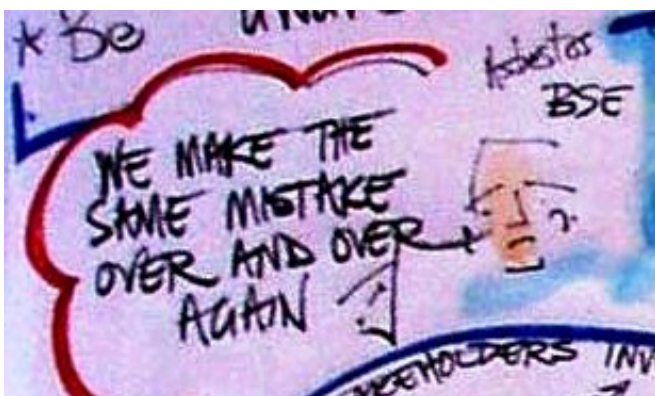 * Be
Asbestos
BSE
WE MAKE THE
SAME MISTAKE
OVER AND OVER
AGAIN